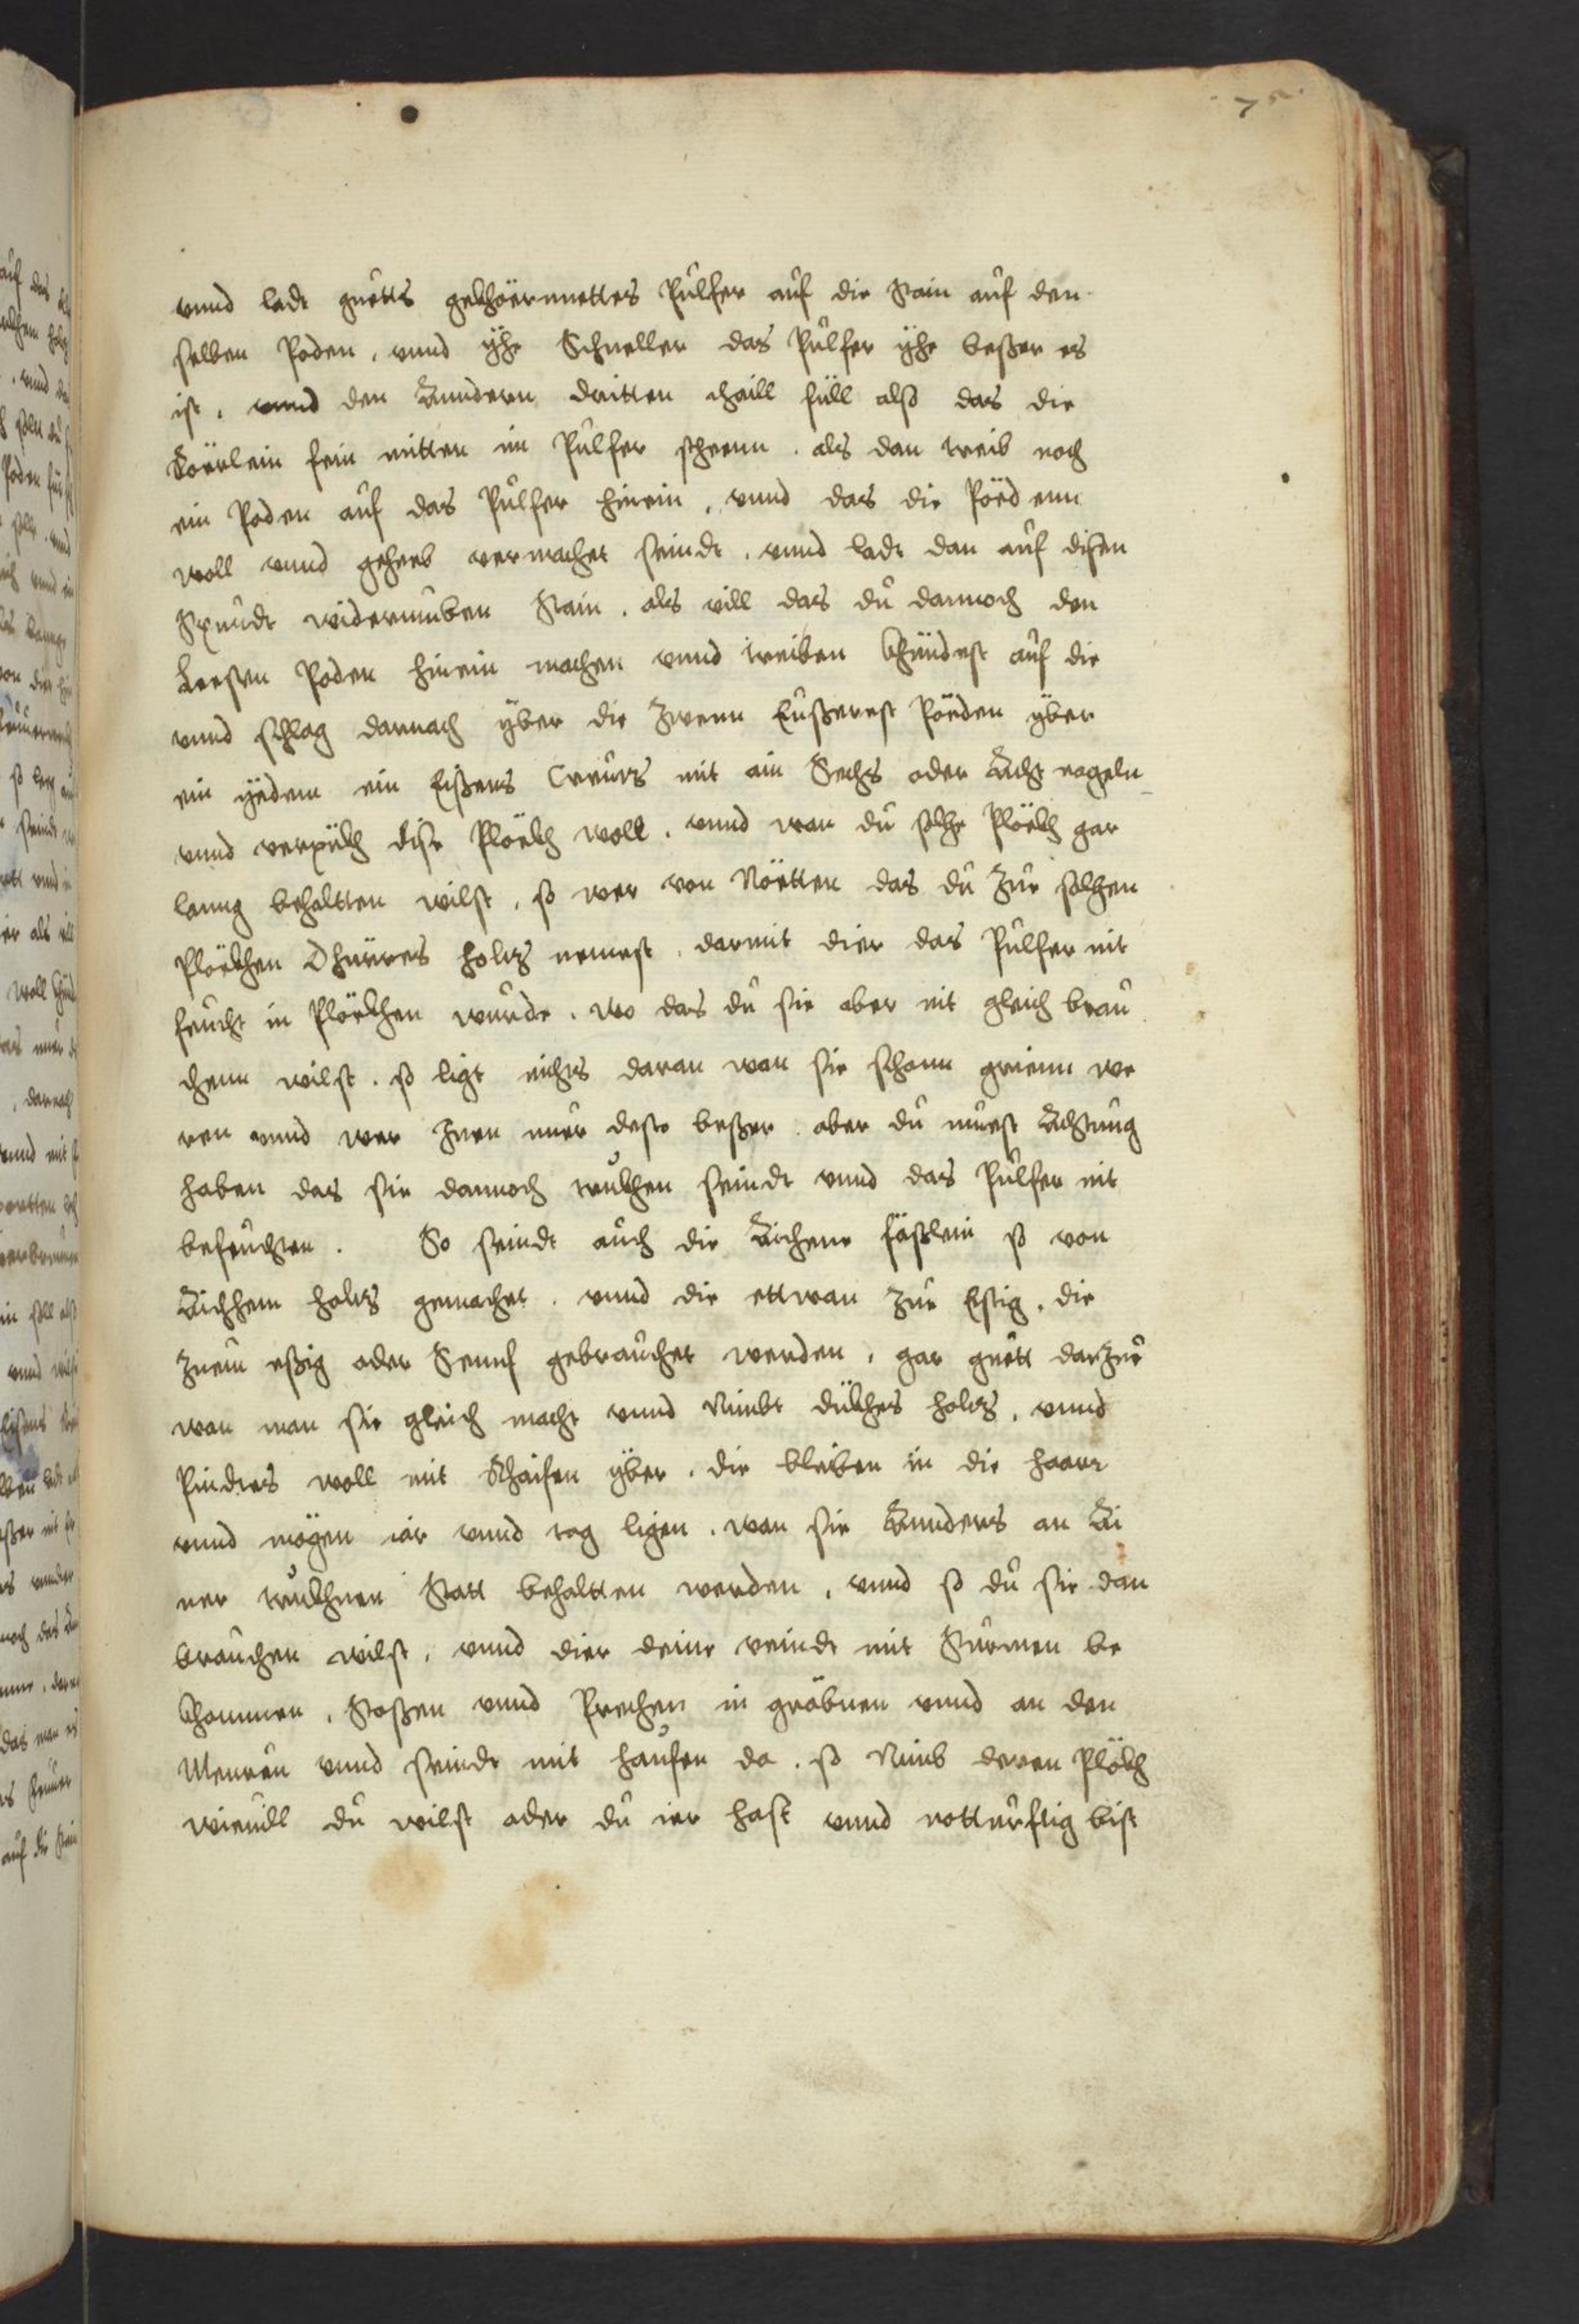 75
vnnd ladt guetts gekhöernnettes Pulfer auf die Stain auf den
selben Poden, vnnd ÿhe Schneller das Pulfer ÿhe beßer es
ist, vnnd den Anndern dritten thaill füll also das die
Röerlein fein mitten im Pulfer steenn. als dan treib noch
ein Poden auf das Pulfer hinein, vnnd das die Pöedenn
woll vnnd geheb vermachet seindt, vnnd ladt dan auf disen
Spundt widerumben Stain, als vill das du dannoch den
Letsten Poden hinein machen vnnd treiben khündest auf die
vnnd schlag darnach ÿber die zwenn Eußerest Pöeden ÿber
ein ÿedem ein Eißens Creutz mit ain Sechs oder Acht nageln
vnnd verpükh dise Plöekh woll, vnnd wan du solhe Plöekh gar
lanng behaltten wilst, so wer von Nöetten das du zur solhen
Plöekhen Dhürres holtz nemest, darmit dier das Pulfer nit
feucht in Plöekhen wurde, wo das du sie aber nit gleich brau
chenn wilst, so ligt nichts daran wan sie schonn grienn we
ren vnnd wer Inen nuer desto beßer, aber du muest Achtung
haben das sie dannoch trukhen seindt vnnd das Pulfer nit
befeuchten. So seindt auch die Aichene fäßlein so von
Aichhem holtz gemachet, vnnd die ettwan zur Estig, die
zuem eßig oder Sennf gebrauchet werden, gar guett darzue
wan man sie gleich macht vnnd Nimbt dükhes holtz, vnnd
Pindtes woll mit Rhaifen ÿber, die bleiben in die haarr
vnnd mögen iar vnnd tag ligen, wan sie Annders an Ai
ner trukhnen Statt behaltten werden, vnnd so du sie dan
brauchen wilst, vnnd dier deine veindt mit Sturmen be
khommen, Stoßen vnnd Prechen in gräbnen vnnd an den
Meuren vnnd seindt mit haufen da, so Nimb deren Plökh
wieuill du wilst oder du ier hast vnnd notturftig bist